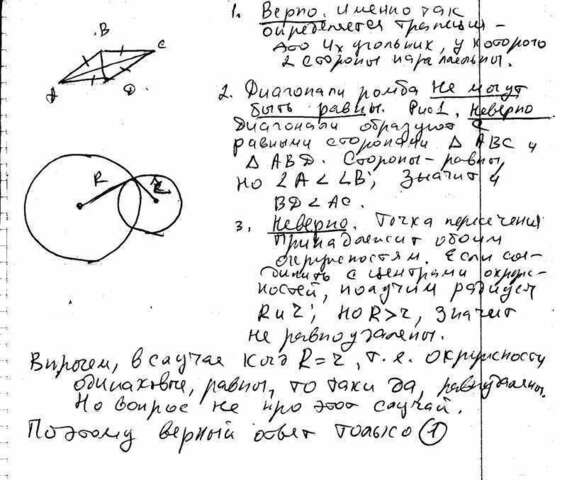 1. Верно. Именно так
определяется трапеция -
это 4х угольник, у которого
2 стороны параллельны.
B
C
A
D
2. Диагонали ромба не могут
быть равны. Рис 1. Неверно
Диагонали образуют с
равными сторонами Δ ABC и
Δ ABD. Стороны - равны,
но ∠A < ∠B; значит и
BD < AC.
R
r
3. Неверно. Точка пересечения
принадлежит обоим
окружностям. Если сое-
динить с центрами окруж-
ностей, получим радиусы
R и r; но R > r, значит
не равноудалены.
Впрочем, в случае когда R = r, т.е. окружности
одинаковые, равны, то таки да, равноудалены.
Но вопрос не про этот случай.
Поэтому верный ответ только 1